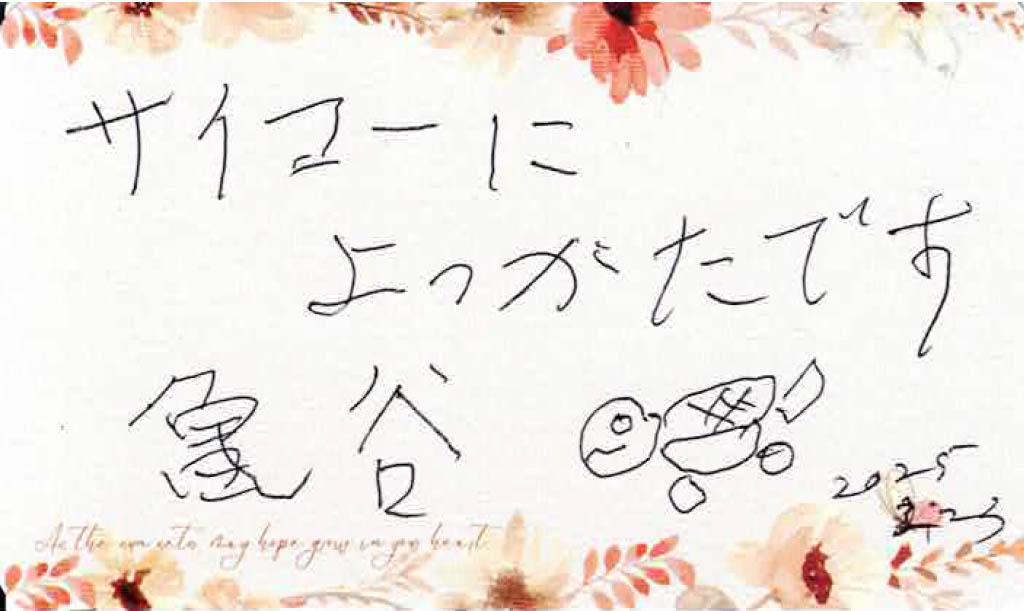 サイコーに
よつがたです
亀谷
2025
As the sun sets may hope grow in you heart.